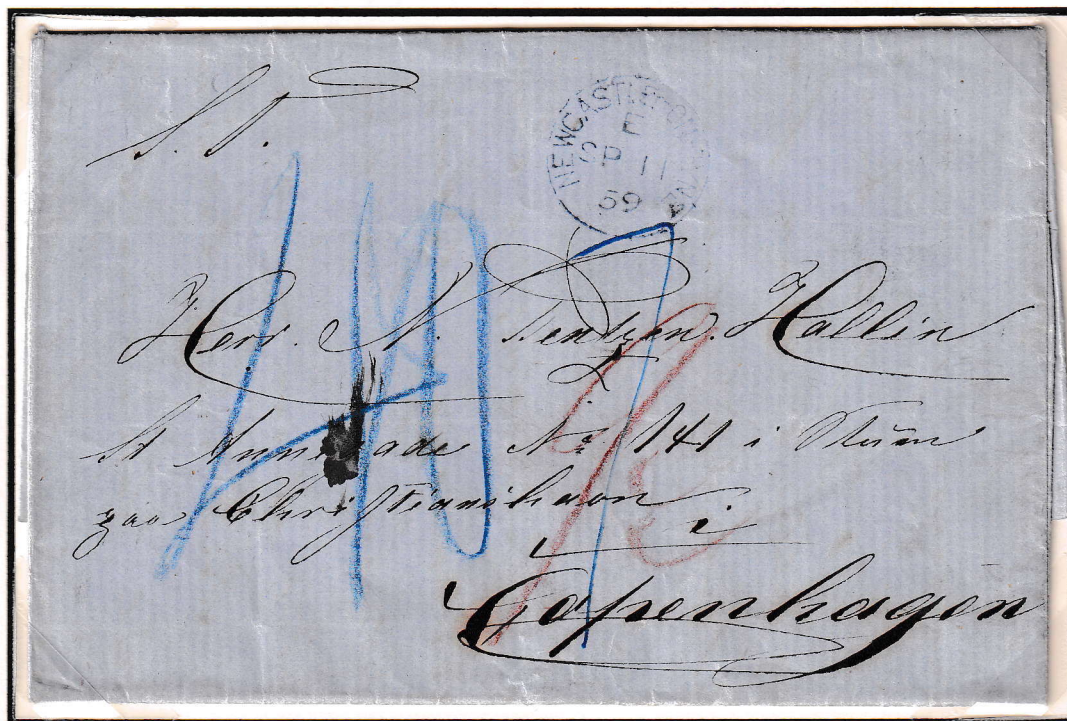 S. T.
NEWCASTLE-ON-TYNE
E
SP 11
59
Herr. N. Hallin
St Annægade No 141 i
paa Christianshavn
i
Copenhagen